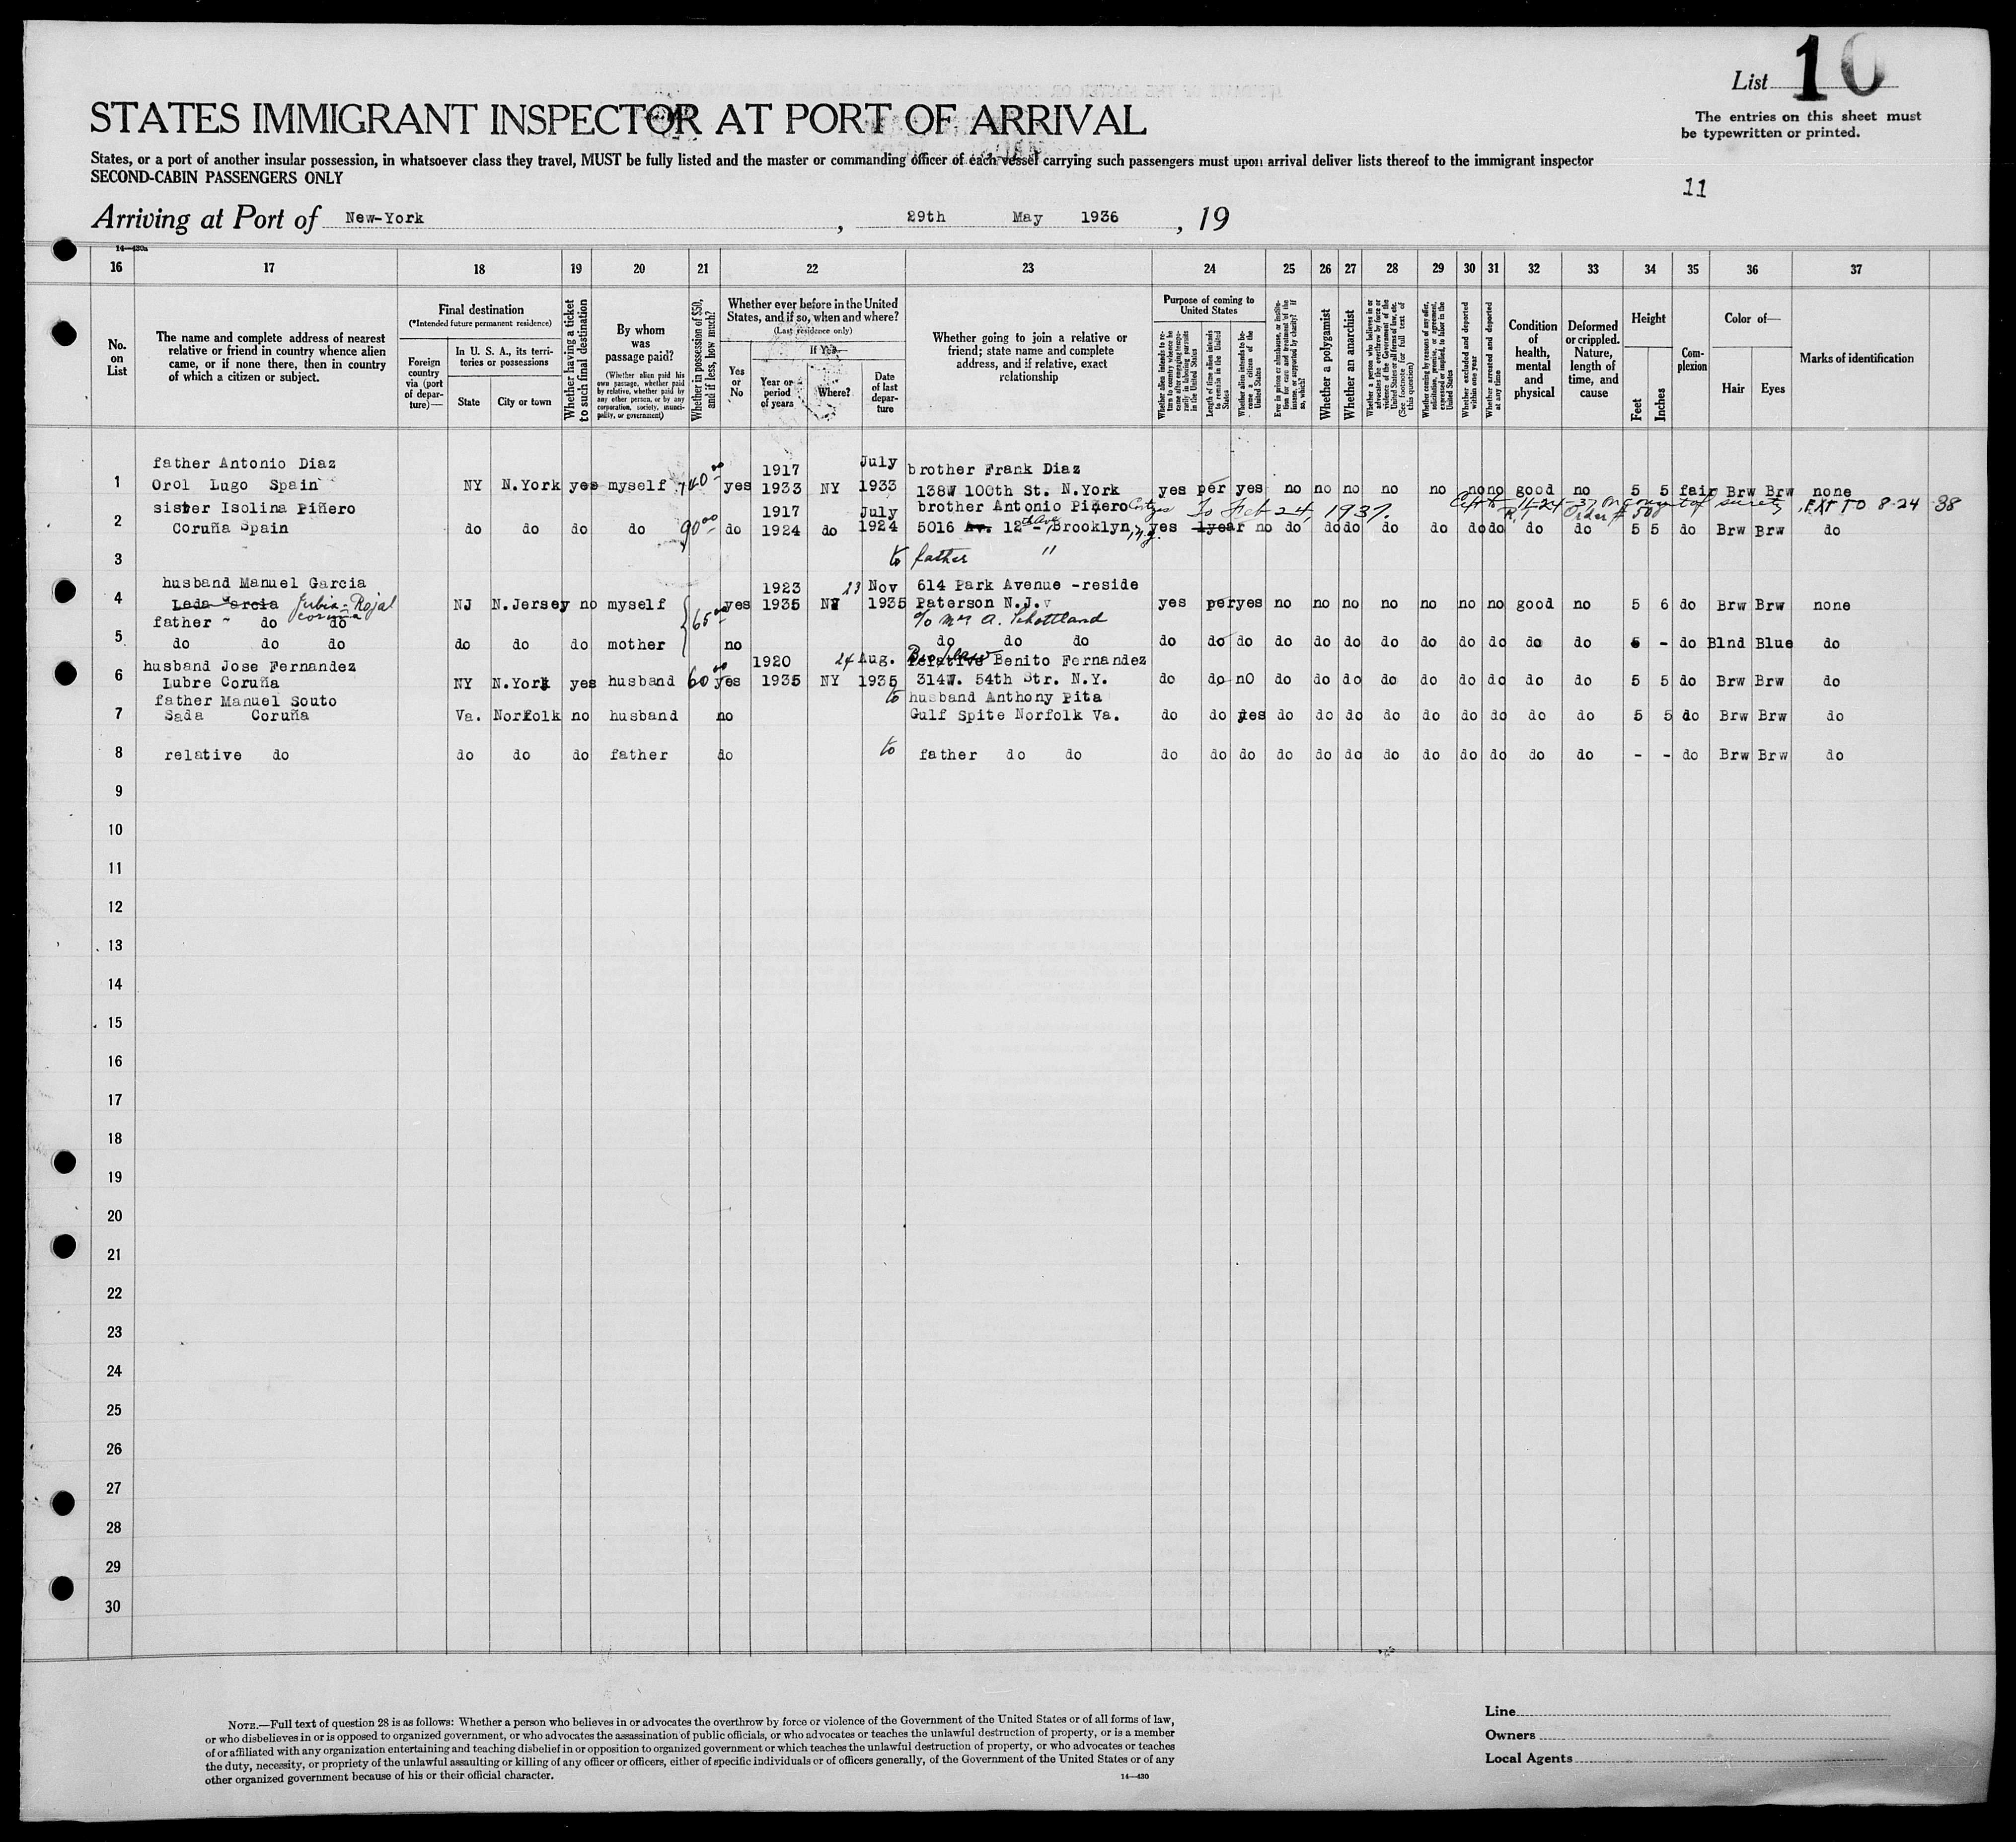 List 10
The entries on this sheet must
be typewritten or printed.
STATES IMMIGRANT INSPECTOR AT PORT OF ARRIVAL
States, or a port of another insular possession, in whatsoever class they travel, MUST be fully listed and the master or commanding officer of each vessel carrying such passengers must upon arrival deliver lists thereof to the immigrant inspector
SECOND-CABIN PASSENGERS ONLY
11
Arriving at Port of New-York, 29th May 1936, 19
14—430a
16 17 18 19 20 21 22 23 24 25 26 27 28 29 30 31 32 33 34 35 36 37
No. on List
The name and complete address of nearest relative or friend in country whence alien came, or if none there, then in country of which a citizen or subject.
Final destination
(*Intended future permanent residence)
Foreign country via (port of departure)—
In U. S. A., its territories or possessions
State
City or town
Whether having a ticket to such final destination
By whom was passage paid?
(Whether alien paid his own passage, whether paid by relative, whether paid by any other person, or by any corporation, society, municipality, or government)
Whether in possession of $50, and if less, how much?
Whether ever before in the United States, and if so, when and where?
(Last residence only)
Yes or No
If Yes—
Year or period of years
Where?
Date of last departure
Whether going to join a relative or friend; state name and complete address, and if relative, exact relationship
Purpose of coming to United States
Whether alien intends to return to country whence he came after engaging temporarily in laboring pursuits in the United States
Length of time alien intends to remain in the United States
Whether alien intends to become a citizen of the United States
Ever in prison or almshouse, or institution for care and treatment of the insane, or supported by charity? If so, which?
Whether a polygamist
Whether an anarchist
Whether a person who believes in or advocates the overthrow by force or violence of the Government of the United States or all forms of law, etc. (See footnote for full text of this question)
Whether coming by reasons of any offer, solicitation, promise, or agreement, expressed or implied, to labor in the United States
Whether excluded and deported within one year
Whether arrested and deported at any time
Condition of health, mental and physical
Deformed or crippled. Nature, length of time, and cause
Height
Feet
Inches
Complexion
Color of—
Hair
Eyes
Marks of identification
father Antonio Diaz 1917 July brother Frank Diaz
1 Orol Lugo Spain NY N.York yes myself 140 00 yes 1933 NY 1933 138W 100th St. N.York yes per yes no no no no no no no good no 5 5 fair Brw Brw none
sister Isolina Piñero 1917 July brother Antonio Piñero To Feb 24, 1937. EXT TO 8-24 38
2 Coruña Spain do do do do 90 00 do 1924 do 1924 5016 Av. 12th Ave Brooklyn, yes 1year no do do do do do do do do do 5 5 do Brw Brw do
3 to father "
husband Manuel Garcia 1923 23 Nov 614 Park Avenue -reside
4 Lada Garcia Jubia-Rojal Coruña NJ N.Jersey no myself 65 00 yes 1935 NY 1935 Paterson N.J. yes per yes no no no no no no no good no 5 6 do Brw Brw none
father do do c/o Mrs A. Schottland
5 do do do do do do mother no do do do do do do do do do do do do do do do 5 - do Blnd Blue do
husband Jose Fernandez 1920 24 Aug. relative Benito Fernandez
6 Lubre Coruña NY N.York yes husband 60 00 yes 1935 NY 1935 314W. 54th Str. N.Y. do do nO do do do do do do do do do 5 5 do Brw Brw do
father Manuel Souto to husband Anthony Pita
7 Sada Coruña Va. Norfolk no husband no Gulf Spite Norfolk Va. do do yes do do do do do do do do do 5 5 do Brw Brw do
8 relative do do do do father do to father do do do do do do do do do do do do do do - - do Brw Brw do
9
10
11
12
13
14
15
16
17
18
19
20
21
22
23
24
25
26
27
28
29
30
NOTE.—Full text of question 28 is as follows: Whether a person who believes in or advocates the overthrow by force or violence of the Government of the United States or of all forms of law,
or who disbelieves in or is opposed to organized government, or who advocates the assassination of public officials, or who advocates or teaches the unlawful destruction of property, or is a member
of or affiliated with any organization entertaining and teaching disbelief in or opposition to organized government or which teaches the unlawful destruction of property, or who advocates or teaches
the duty, necessity, or propriety of the unlawful assaulting or killing of any officer or officers, either of specific individuals or of officers generally, of the Government of the United States or of any
other organized government because of his or their official character.
14—430
Line
Owners
Local Agents